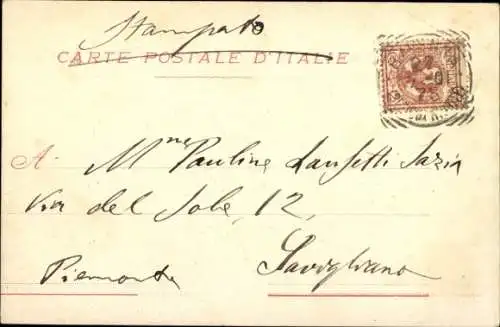 Stampato
CARTE POSTALE D'ITALIE
A. Mme Pauline Lanfetti
Via del Sole, 12,
Savigliano
Piemonte